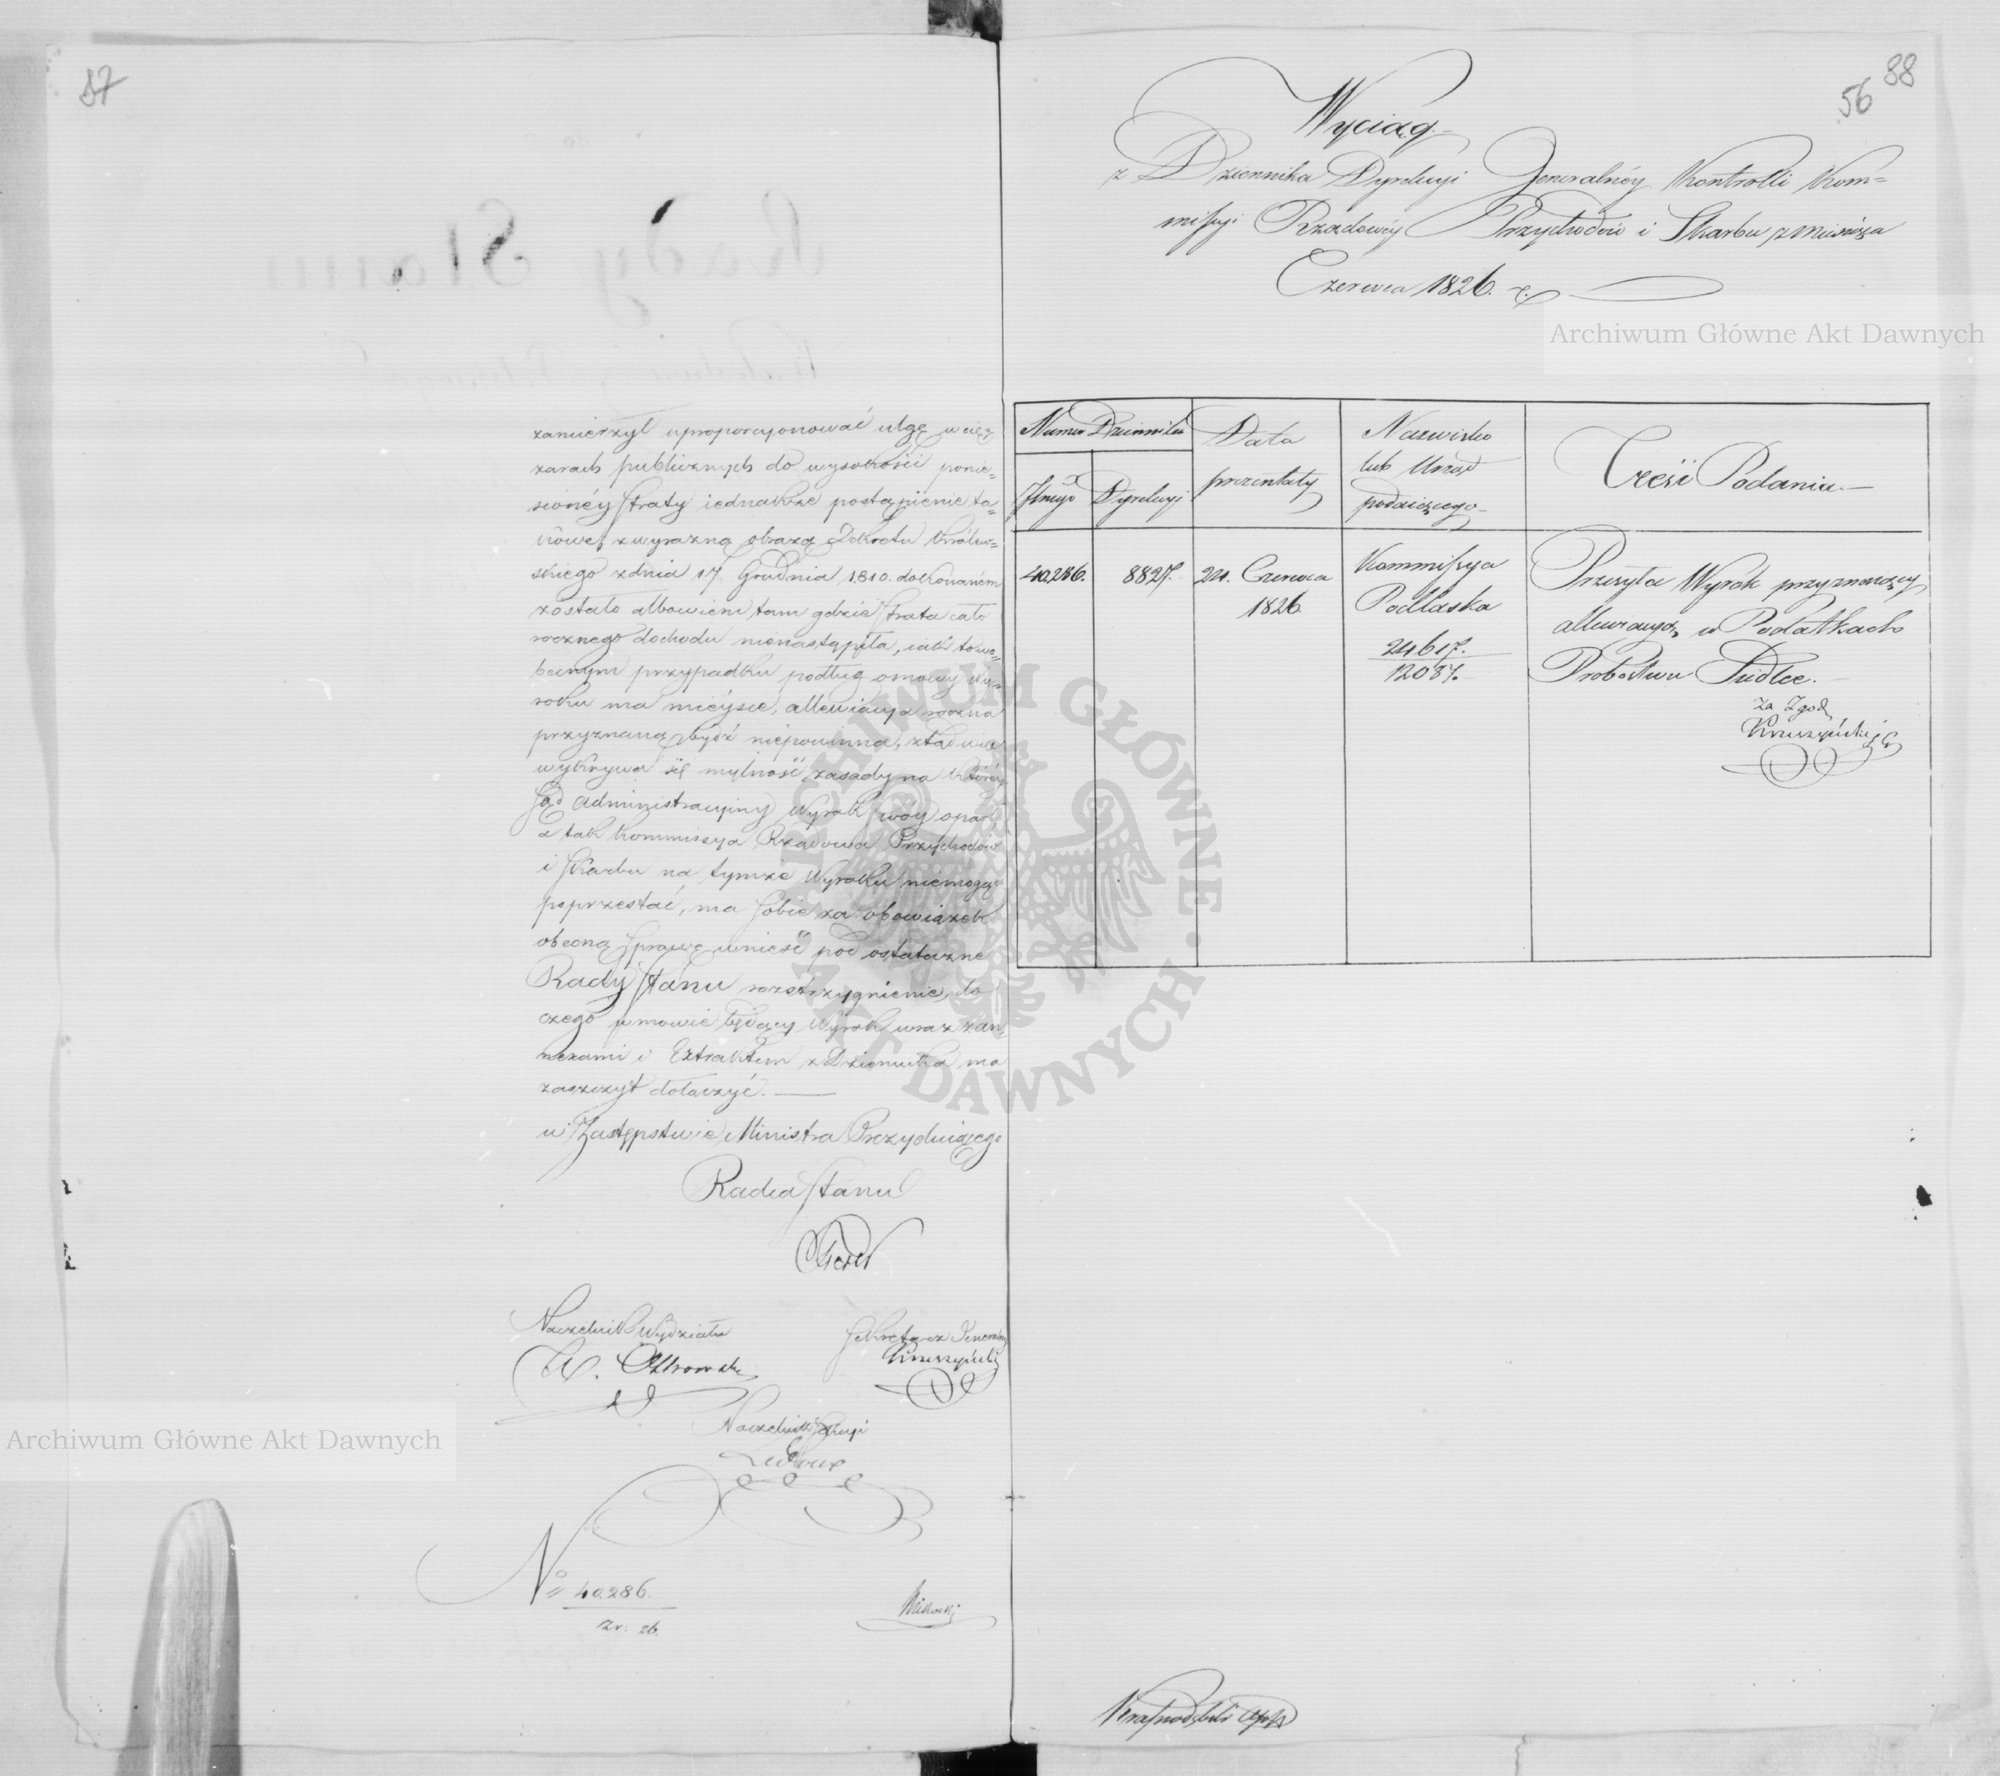 87
zamierzył uproporcyonować ulgę w cię-
żarach publicznych do wysokości ponie=
sionéy straty iednakże postąpienie ta=
kowe, z wyraźną obrazą Dekretu Królew=
skiego z dnia 17. Grudnia 1810. dokonaném
zostało albowiem tam gdzie strata cało
rocznego dochodu nienastąpiła, iak to w o=
becnym przypadku podług osnowy Wy=
roku ma mieysce, allewiacya roczna
przyznaną bydź niepowinna, ztąd więc
wykrywa się mylność zasady na któréy
Sąd Administracyiny Wyrok swóy oparł,
a tak Kommissya Rządowa Przychodów
i Skarbu na tymże Wyroku niemogąc
poprzestać, ma sobie za obowiązek
obecną sprawę wnieść pod ostateczne
Rady Stanu rozstrzygnienie, do
czego w mowie będący Wyrok wraz z an-
nexami i Extraktem z Dziennika ma
zaszczyt dołączyć. —
w Zastępstwie Ministra Prezyduiącego
Radca Stanu
Naczelnik Wydziału
Ostrowski
Sekretarz Generalny
Kruszyński
Naczelnik Sekcyi
No 40.286.
26.
88
56
Wyciąg
z Dziennika Dyrekcyi Generalnéy Kontrolli Kom=
missyi Rządowéy Przychodów i Skarbu z Miesiąca
Czerwca 1826. r.
Numer Dziennika
Data
prezentaty
Nazwisko
lub Urząd
podaiącego
Treść Podania.—
Dyrekcyi
40,286.
8827.
24. Czerwca
1826
Kommissya
Podlaska
24617.
12087.
Przesyła Wyrok przyznaiący
allewiacyą w Podatkach
Probostwu Siedlce.—
Za Zgod
Kruszyński
Archiwum Główne Akt Dawnych
Archiwum Główne Akt Dawnych
ARCHIWUM GŁÓWNE · AKT DAWNYCH ·